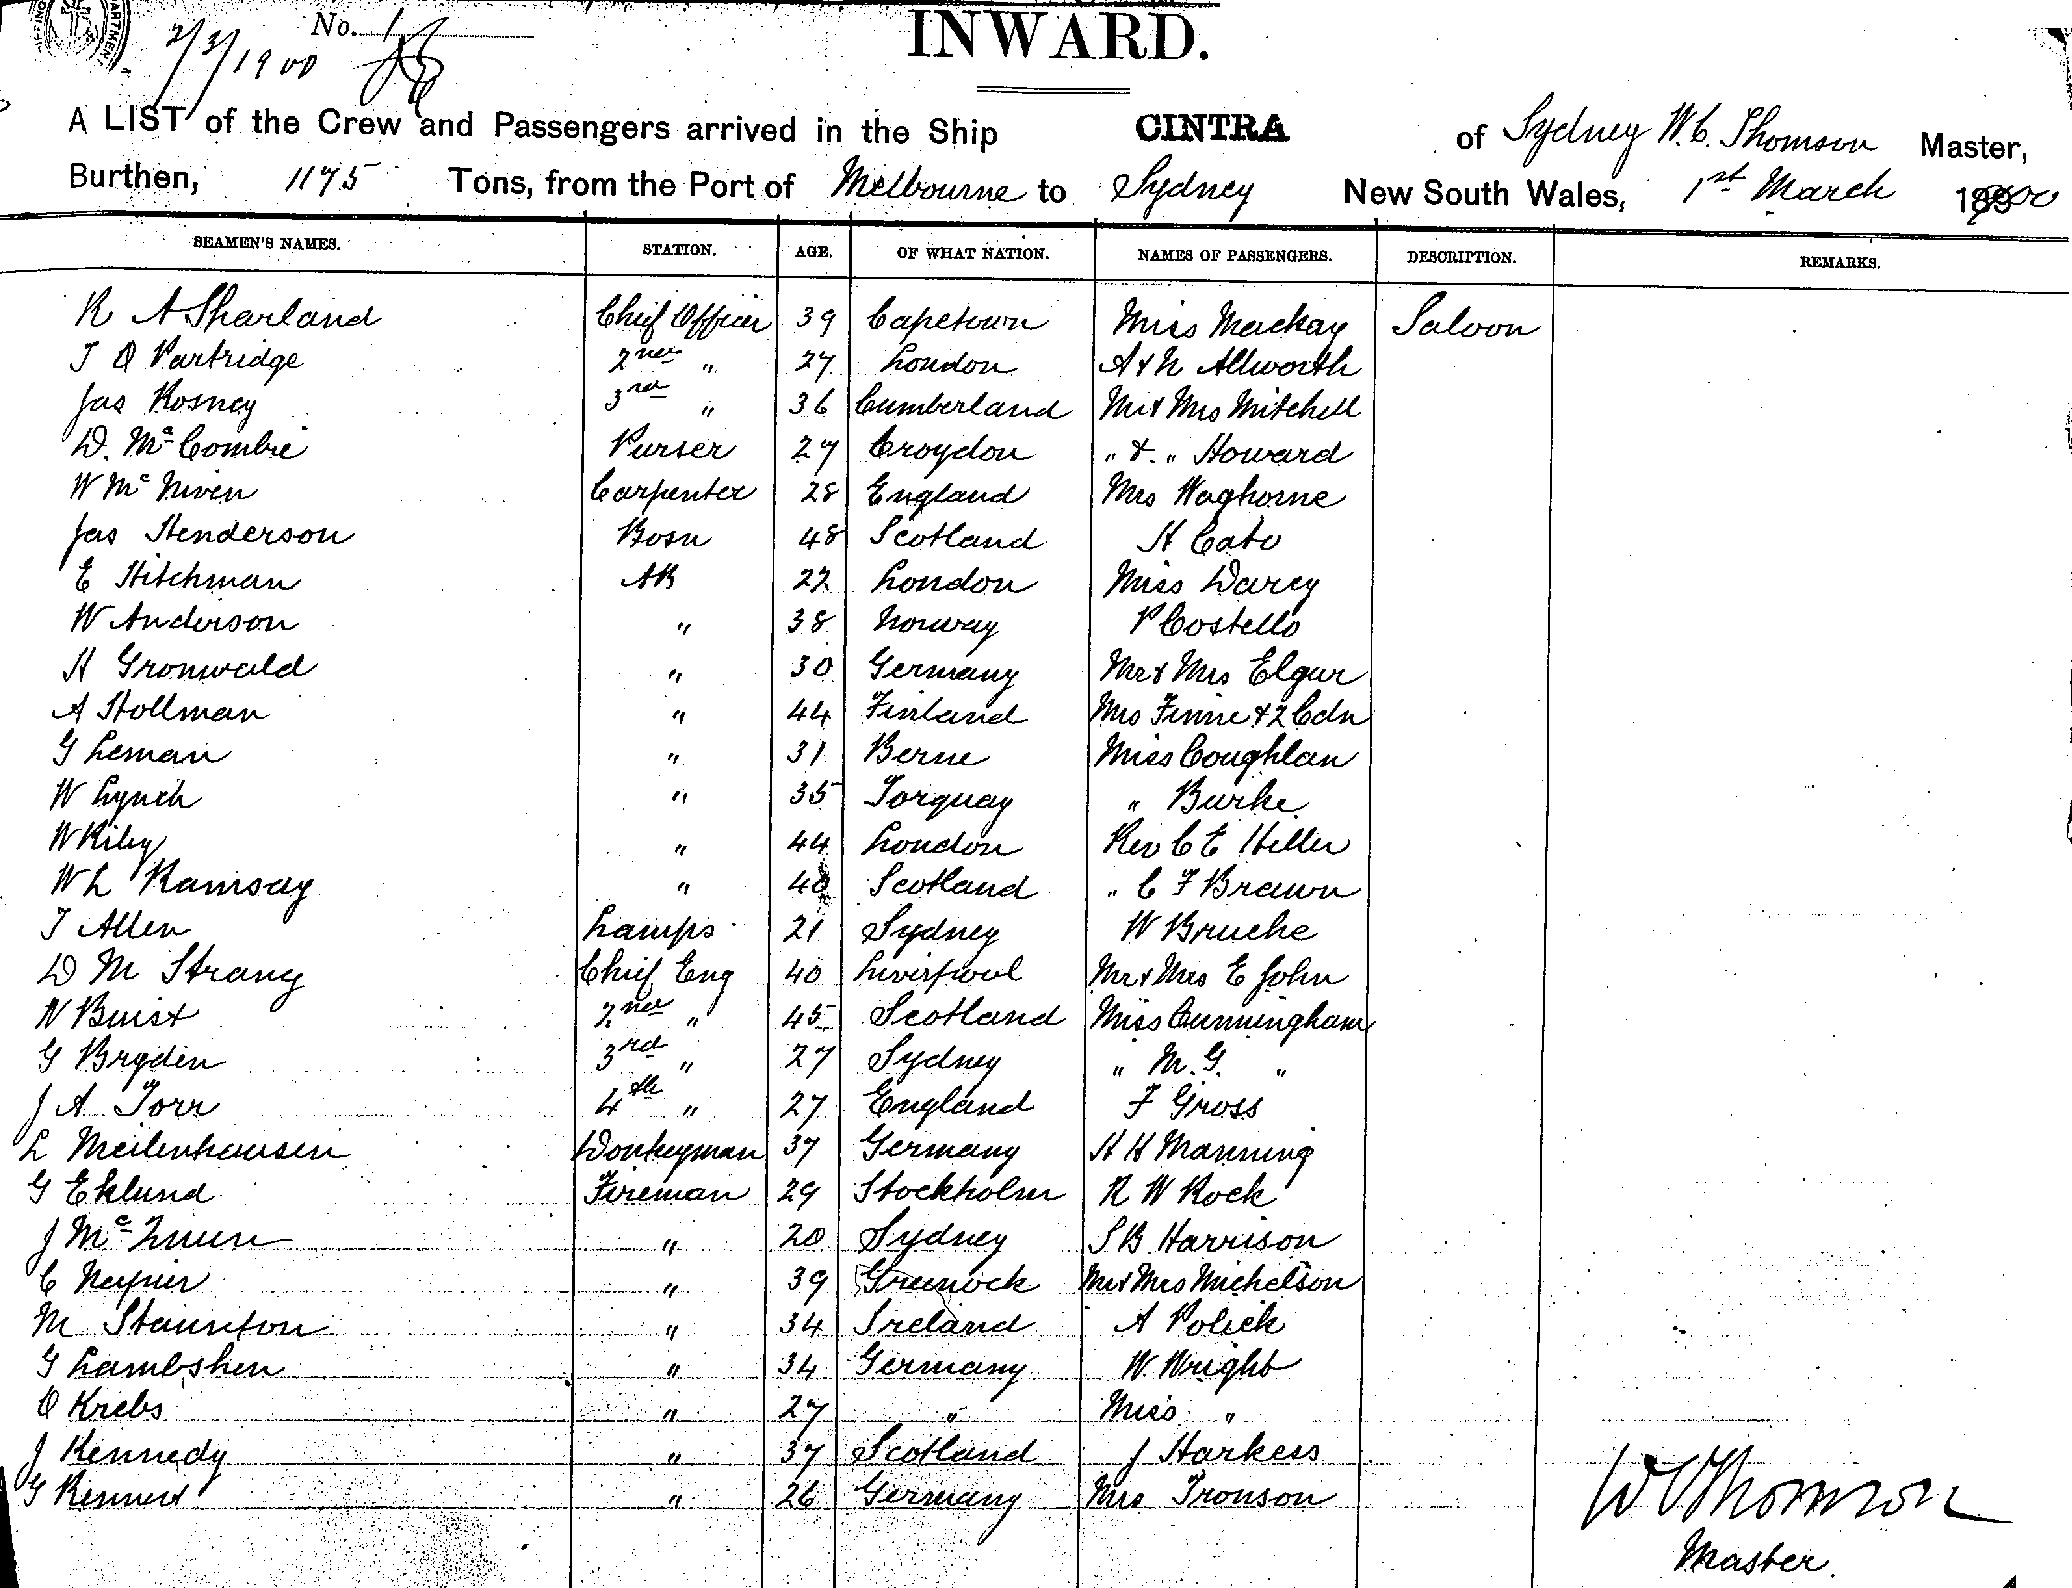 No. 1
2/3/1900
INWARD.
A LIST of the Crew and Passengers arrived in the Ship CINTRA of Sydney W. C. Thomson Master,
Burthen, 1175 Tons, from the Port of Melbourne to Sydney New South Wales, 1st March 1900
SEAMEN'S NAMES. STATION. AGE. OF WHAT NATION. NAMES OF PASSENGERS. DESCRIPTION. REMARKS.
R A Sharland Chief Officer 39 Capetown Miss Mackay Saloon
J O Partridge 2nd " 27 London A & N Allworth
Jas Rosney 3rd " 36 Cumberland Mr & Mrs Mitchell
D. McCombie Purser 27 Croydon " & " Howard
W McNiven Carpenter 28 England Mrs Waghorne
Jas Henderson Bosn 48 Scotland H Cato
E Hitchman AB 22 London Miss Darcy
W Anderson " 38 Norway P Costello
H Gronwald " 30 Germany Mr & Mrs Elgar
A Hollman " 44 Finland Mrs Finne & 2 Cdn
G Leman " 31 Berne Miss Coughlan
W Lynch " 35 Torquay " Burke
W Riley " 44 London Rev C E Heller
W L Ramsay " 40 Scotland " C F Brawn
J Allen Lamps 21 Sydney W Bruche
D M Strang Chief Eng 40 Liverpool Mr & Mrs E John
W Buist 2nd " 45 Scotland Miss Cunningham
G Bryden 3rd " 27 Sydney " M. G. "
J A Torr 4th " 27 England F Gross
L Meilenhausen Donkeyman 37 Germany H H Manning
G Eklund Fireman 29 Stockholm R W Rock
J McQueen " 20 Sydney S B Harrison
C Napier " 39 Greenock Mr & Mrs Michelson
M Staunton " 34 Ireland A Polick
G Lambshen " 34 Germany W. Wright
O Krebs " 27 " Miss "
J Kennedy " 37 Scotland J Harkess
G " 26 Germany Mrs Tronson
W C Thomson
Master.